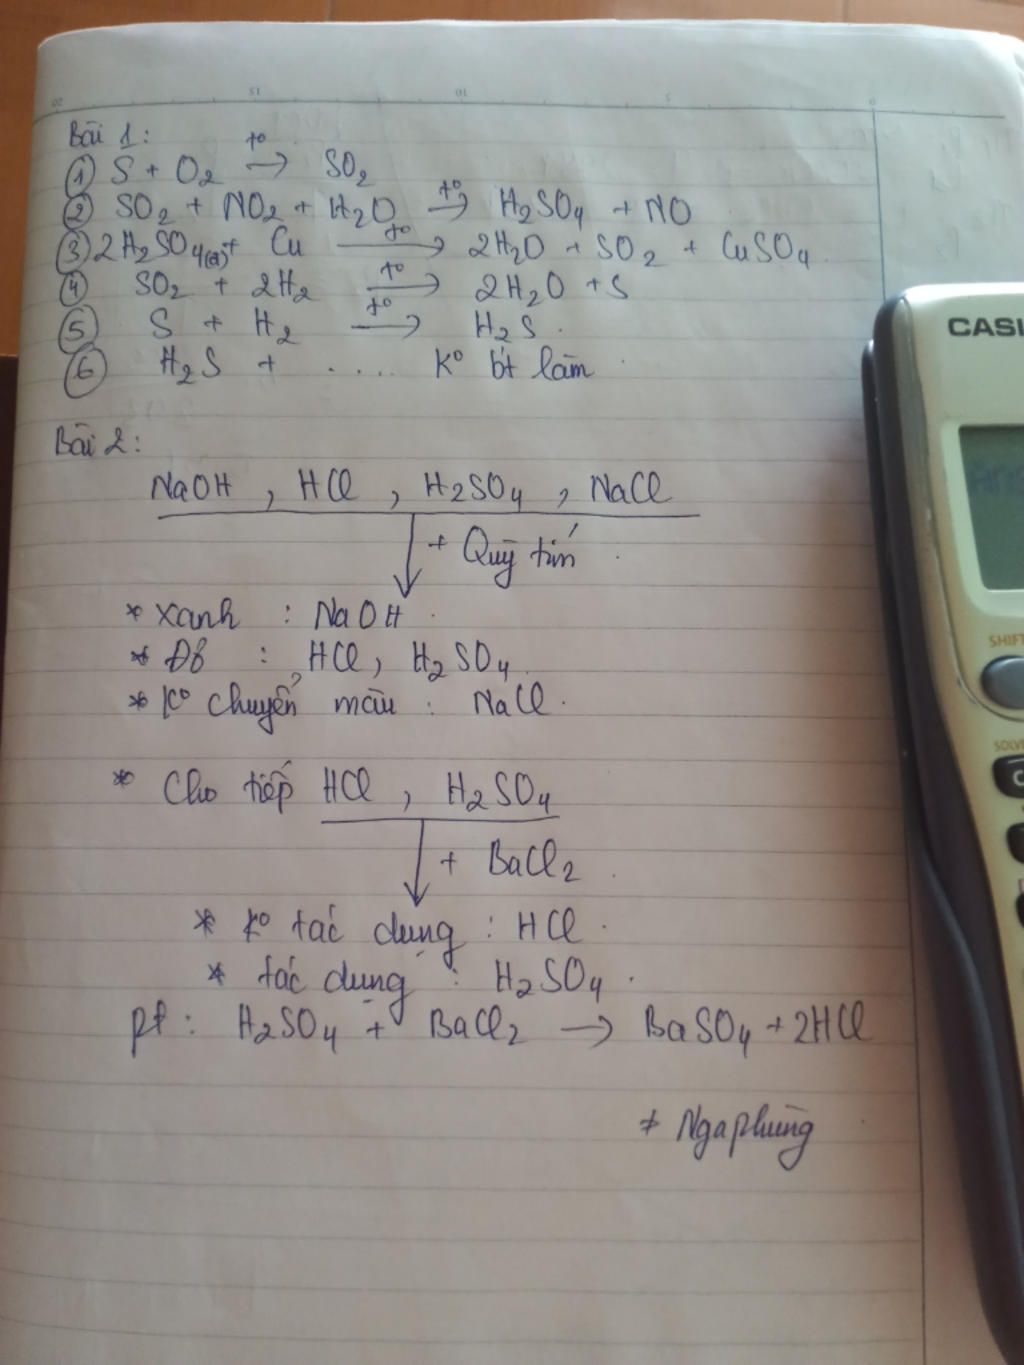 20 15 10 5 0
Bài 1:
① S + O₂ →(t°) SO₂
② SO₂ + NO₂ + H₂O →(t°) H₂SO₄ + NO
③ 2H₂SO₄(đ) + Cu →(t°) 2H₂O + SO₂ + CuSO₄
④ SO₂ + 2H₂ →(t°) 2H₂O + S
⑤ S + H₂ →(t°) H₂S.
⑥ H₂S + ..... K° bt làm
Bài 2:
NaOH, HCl, H₂SO₄, NaCl
↓ + Quỳ tím
* xanh : NaOH.
* Đỏ : HCl, H₂SO₄.
* K° chuyển màu : NaCl.
* Cho tiếp HCl, H₂SO₄
↓ + BaCl₂
* K° tác dụng : HCl.
* tác dụng : H₂SO₄.
pt : H₂SO₄ + BaCl₂ → BaSO₄ + 2HCl
* Ngaphung
CASI
SHIFT
SOLVE